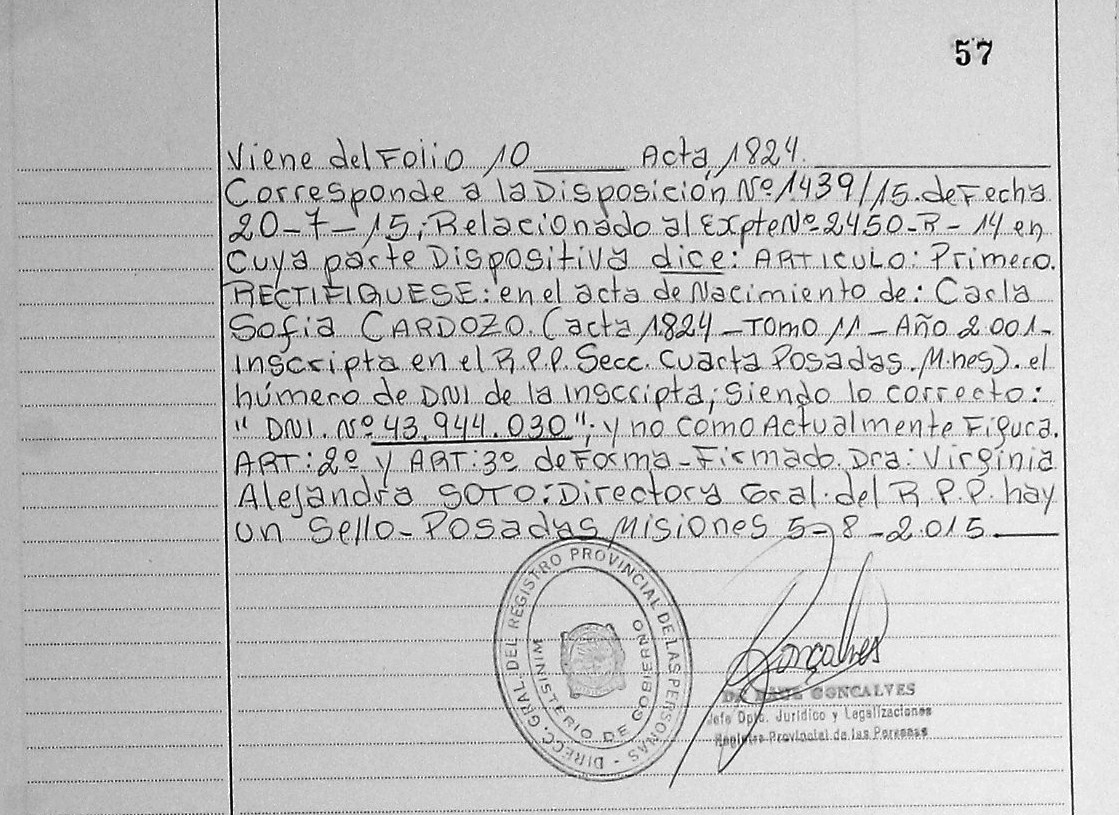 57
Viene del Folio 10 Acta, 1824.
Corresponde a la Disposición Nº 1439/15. de Fecha
20-7-15; Relacionado al Expte Nº 2450-R-14 en
Cuya parte Dispositiva dice: ARTICULO: Primero.
RECTIFIQUESE: en el acta de Nacimiento de: Carla
Sofia CARDOZO. (acta 1824 - TOMO 11 - Año 2.001-
Inscripta en el R.P.P. Secc. Cuarta Posadas. M.nes). el
húmero de DNI de la inscripta; siendo lo correcto:
" DNI. Nº 43.944.030"; y no como Actualmente Figura.
ART: 2º y ART: 3º de Forma - Firmado. Dra: Virginia
Alejandra SOTO: Directora Gral. del R.P.P. hay
un Sello - Posadas, Misiones 5-8-2.015.
DIRECC. GRAL. DEL REGISTRO PROVINCIAL DE LAS PERSONAS -
MINISTERIO DE GOBIERNO
Goncalves
GONCALVES
Jefe Dpto. Jurídico y Legalizaciones
Registro Provincial de las Personas